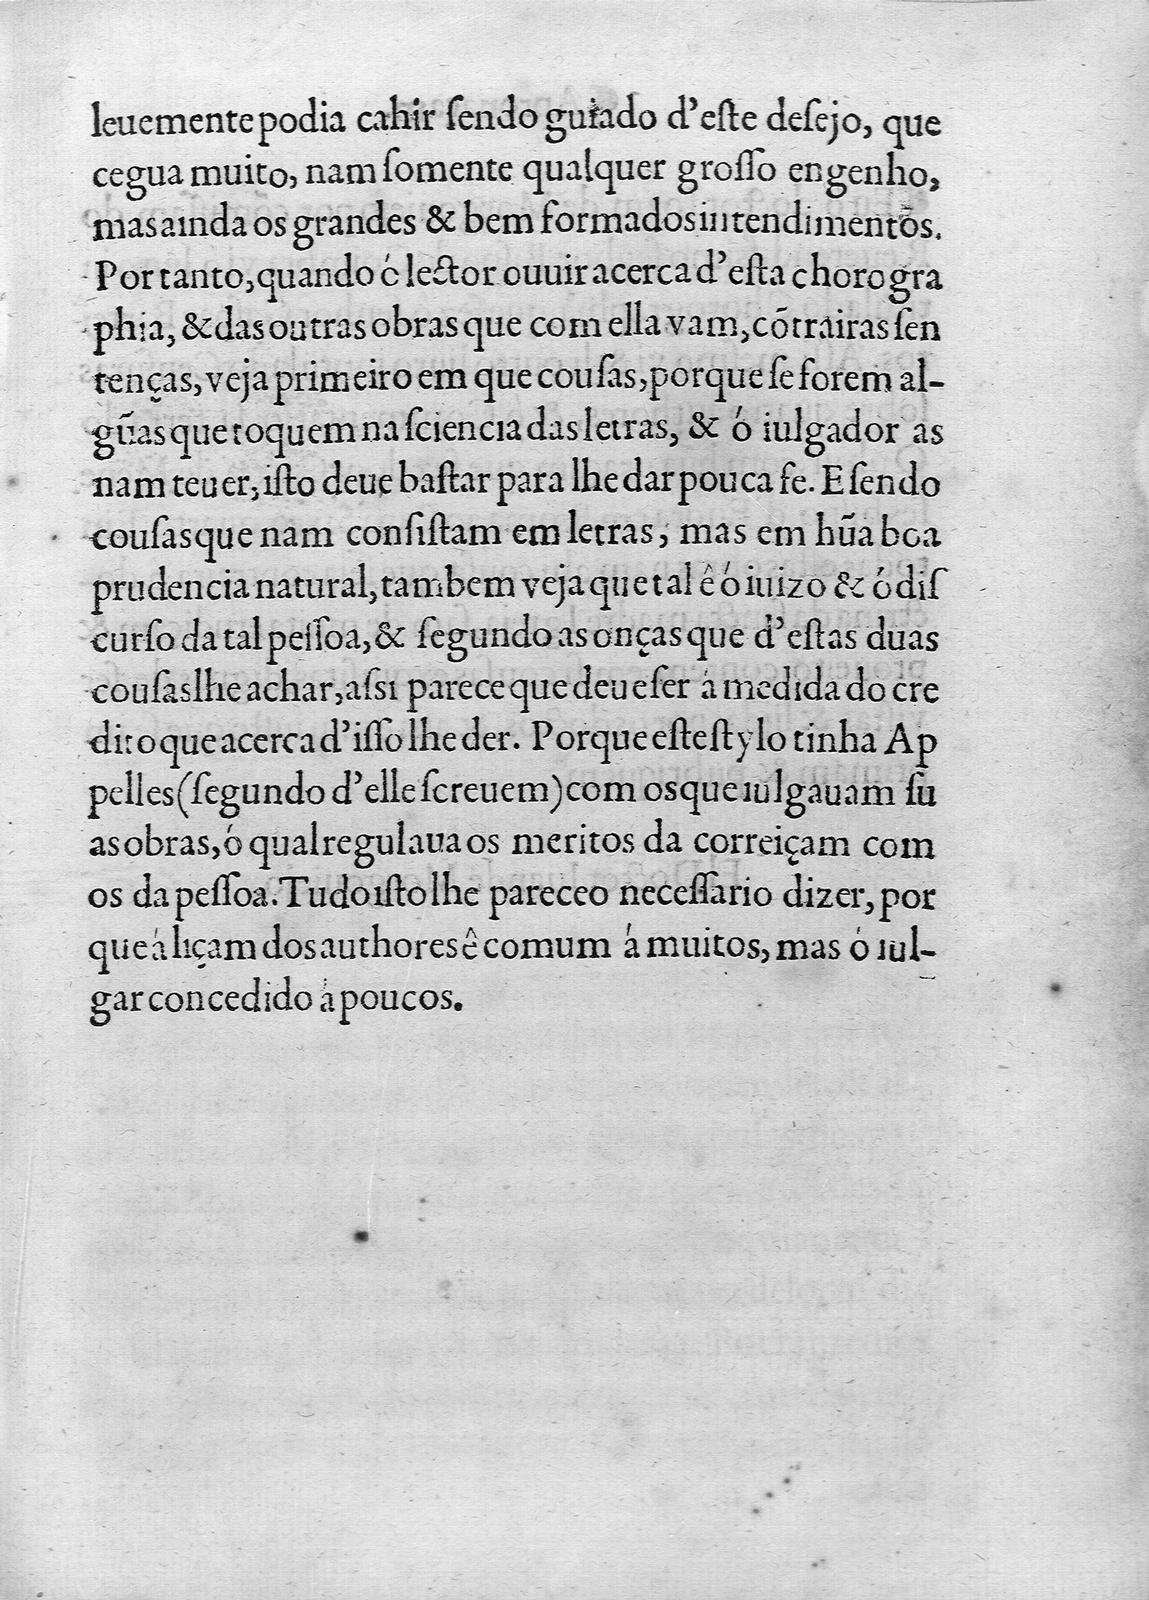 leuemente podia cahir ſendo guiado d'eſte deſejo, que
cegua muito, nam ſomente qualquer groſſo engenho,
mas ainda os grandes & bem formados intendimentõs.
Por tanto, quando ó lector ouuir acerca d'eſta chorogra
phia, & das outras obras que com ella vam, cõtrairas ſen
tenças, veja primeiro em que couſas, porque ſe forem al-
gũas que toquem na ſciencia das letras, & ó iulgador as
nam teuer, iſto deue baſtar para lhe dar pouca fe. E ſendo
couſas que nam conſiſtam em letras, mas em hũa boa
prudencia natural, tambem veja que tal ê ó iuizo & ó diſ
curſo da tal peſſoa, & ſegundo as onças que d'eſtas duas
couſas lhe achar, aſsi parece que deue ſer á medida do cre
dito que acerca d'iſſo lhe der. Porque eſte ſtylo tinha Ap
pelles (ſegundo d'elle ſcreuem) com os que iulgauam ſu
as obras, ó qual regulaua os meritos da correiçam com
os da peſſoa. Tudo iſto lhe pareceo neceſſario dizer, por
que á liçam dos authores ê comum á muitos, mas ó iul-
gar concedido á poucos.